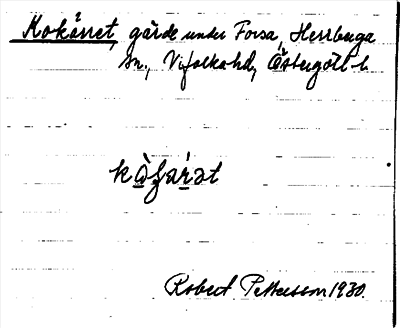 Mokärret, gärde under Forsa, Herrberga
sn., Vifolka hd, Östergötl. l.
Robert Pettersson 1930.